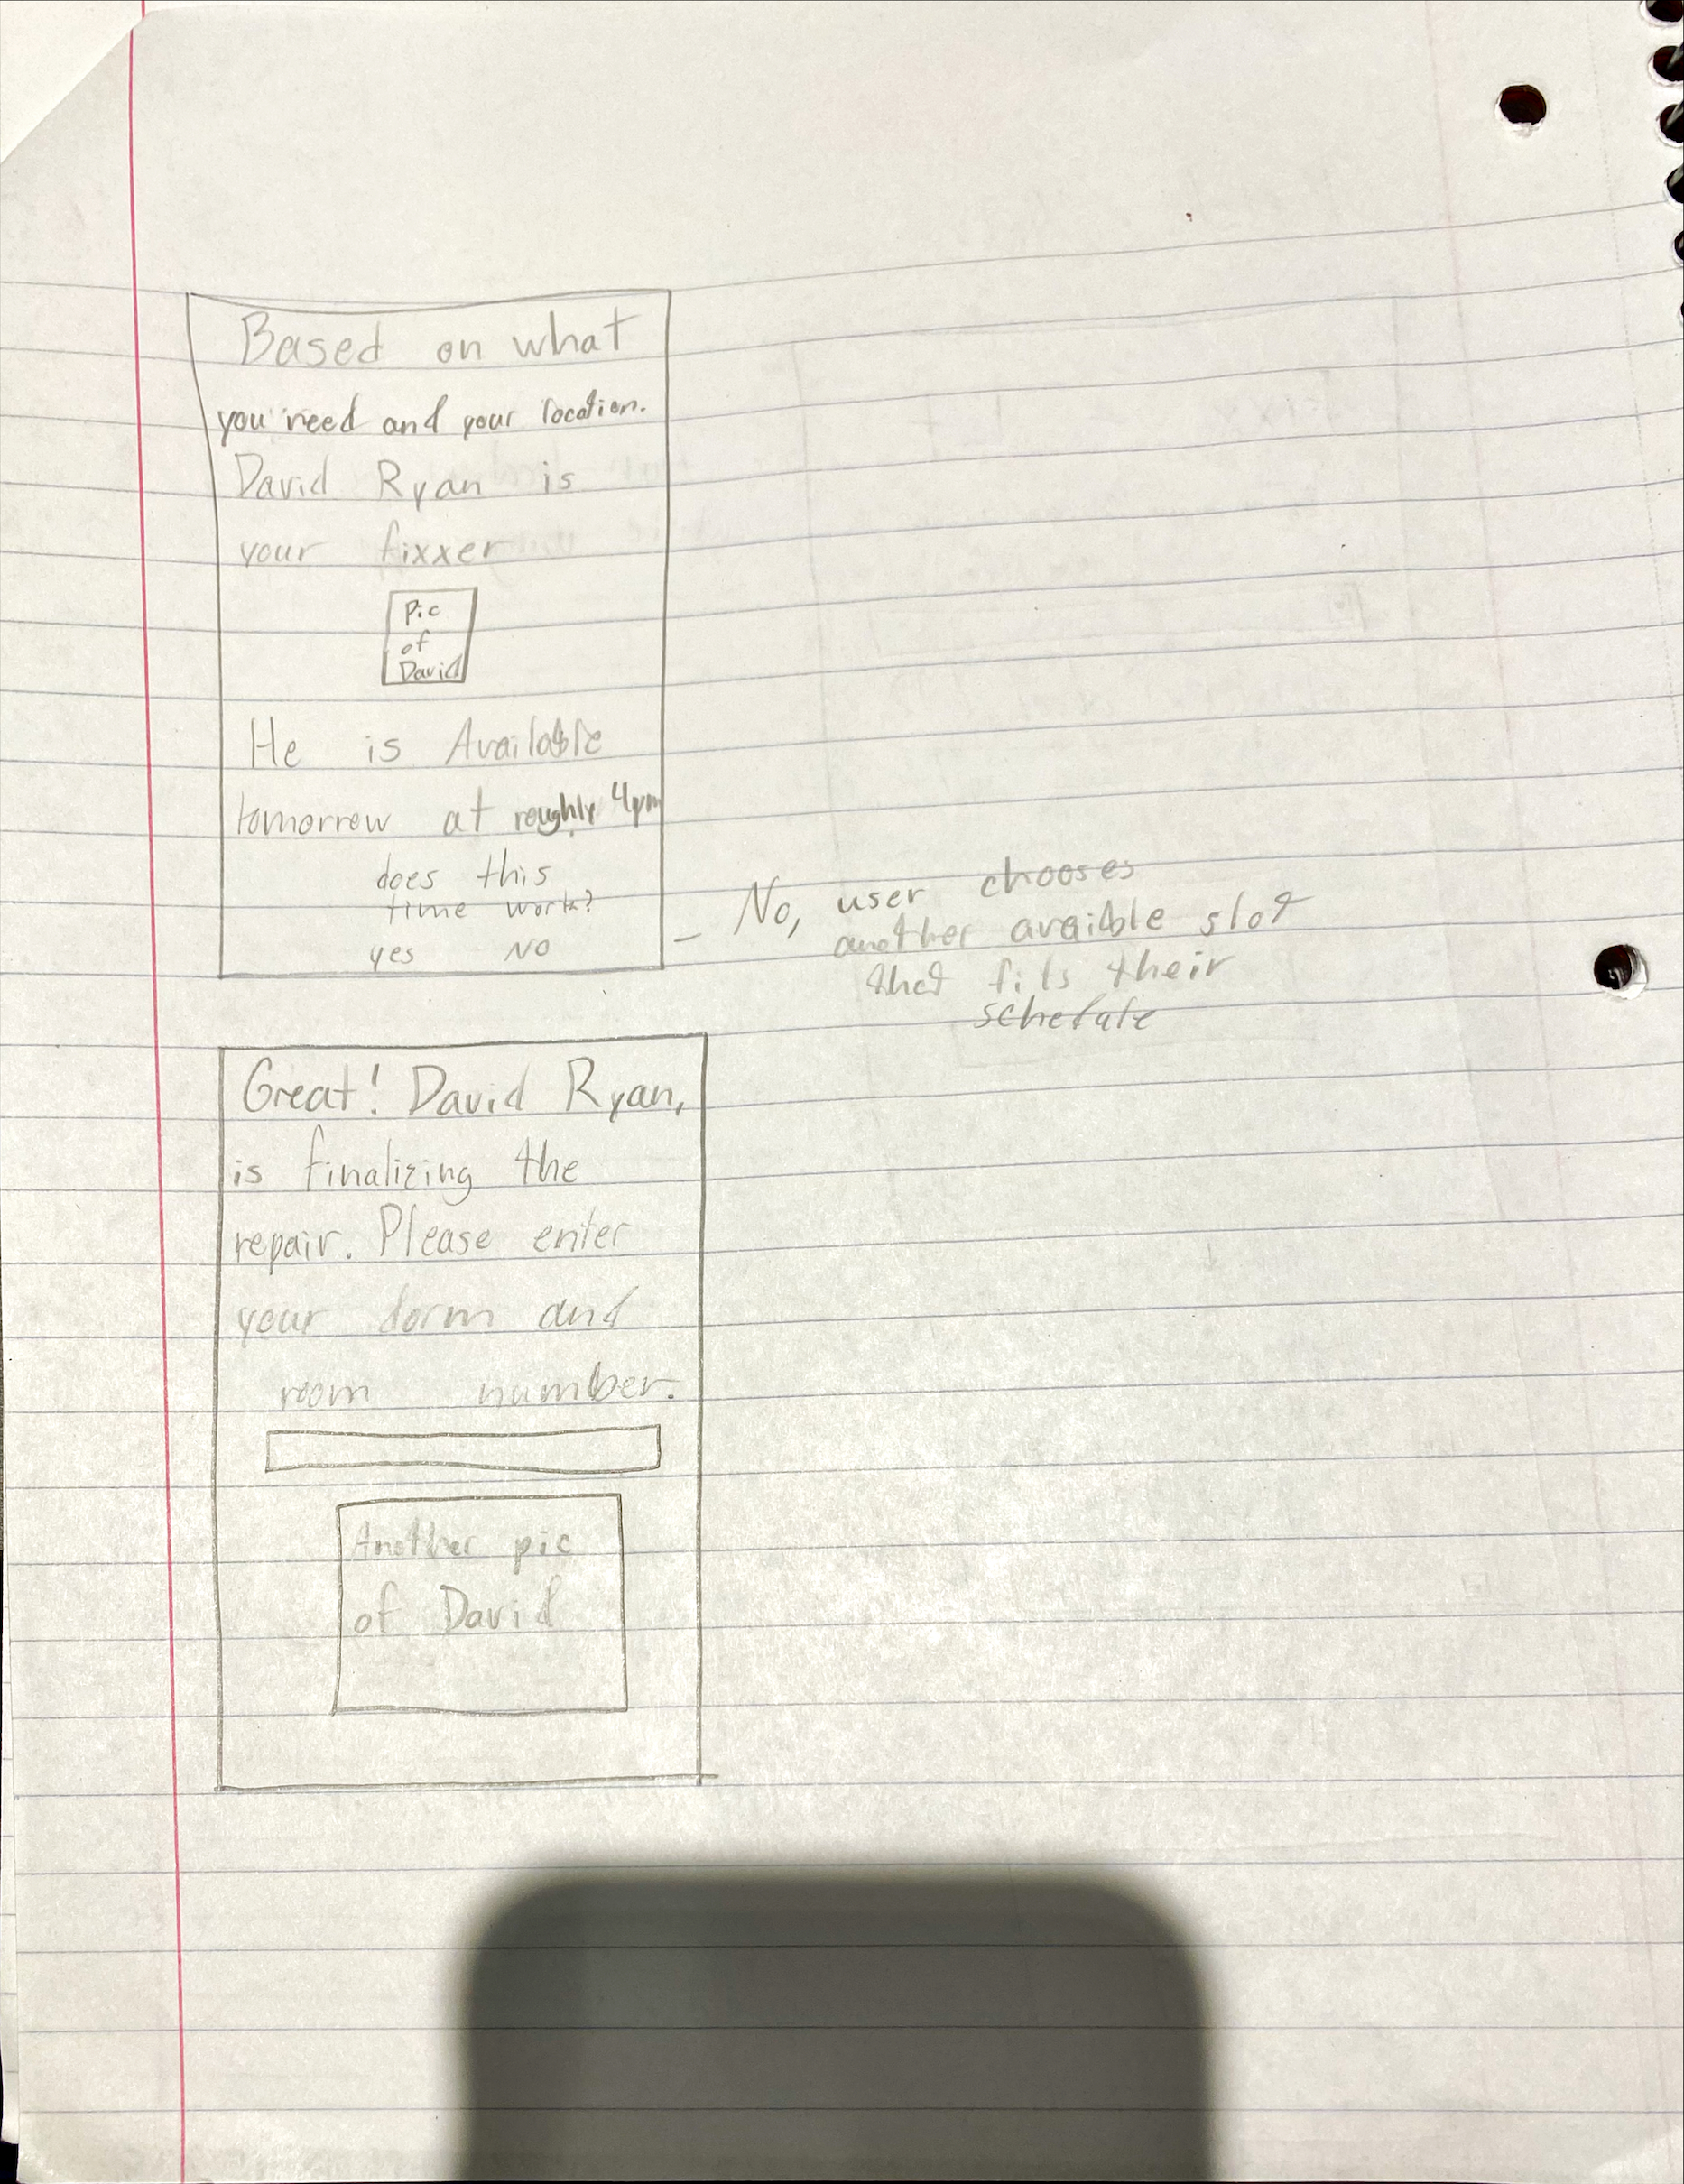 Based on what
you need and your location.
David Ryan is
your fixxer
Pic
of
David
He is Available
tomorrow at roughly 4pm
does this
time work?
yes NO
- No, user chooses
another avaible slot
that fits their
Great! David Ryan,
is finalizing the
repair. Please enter
your dorm and
room number.
Another pic
of David